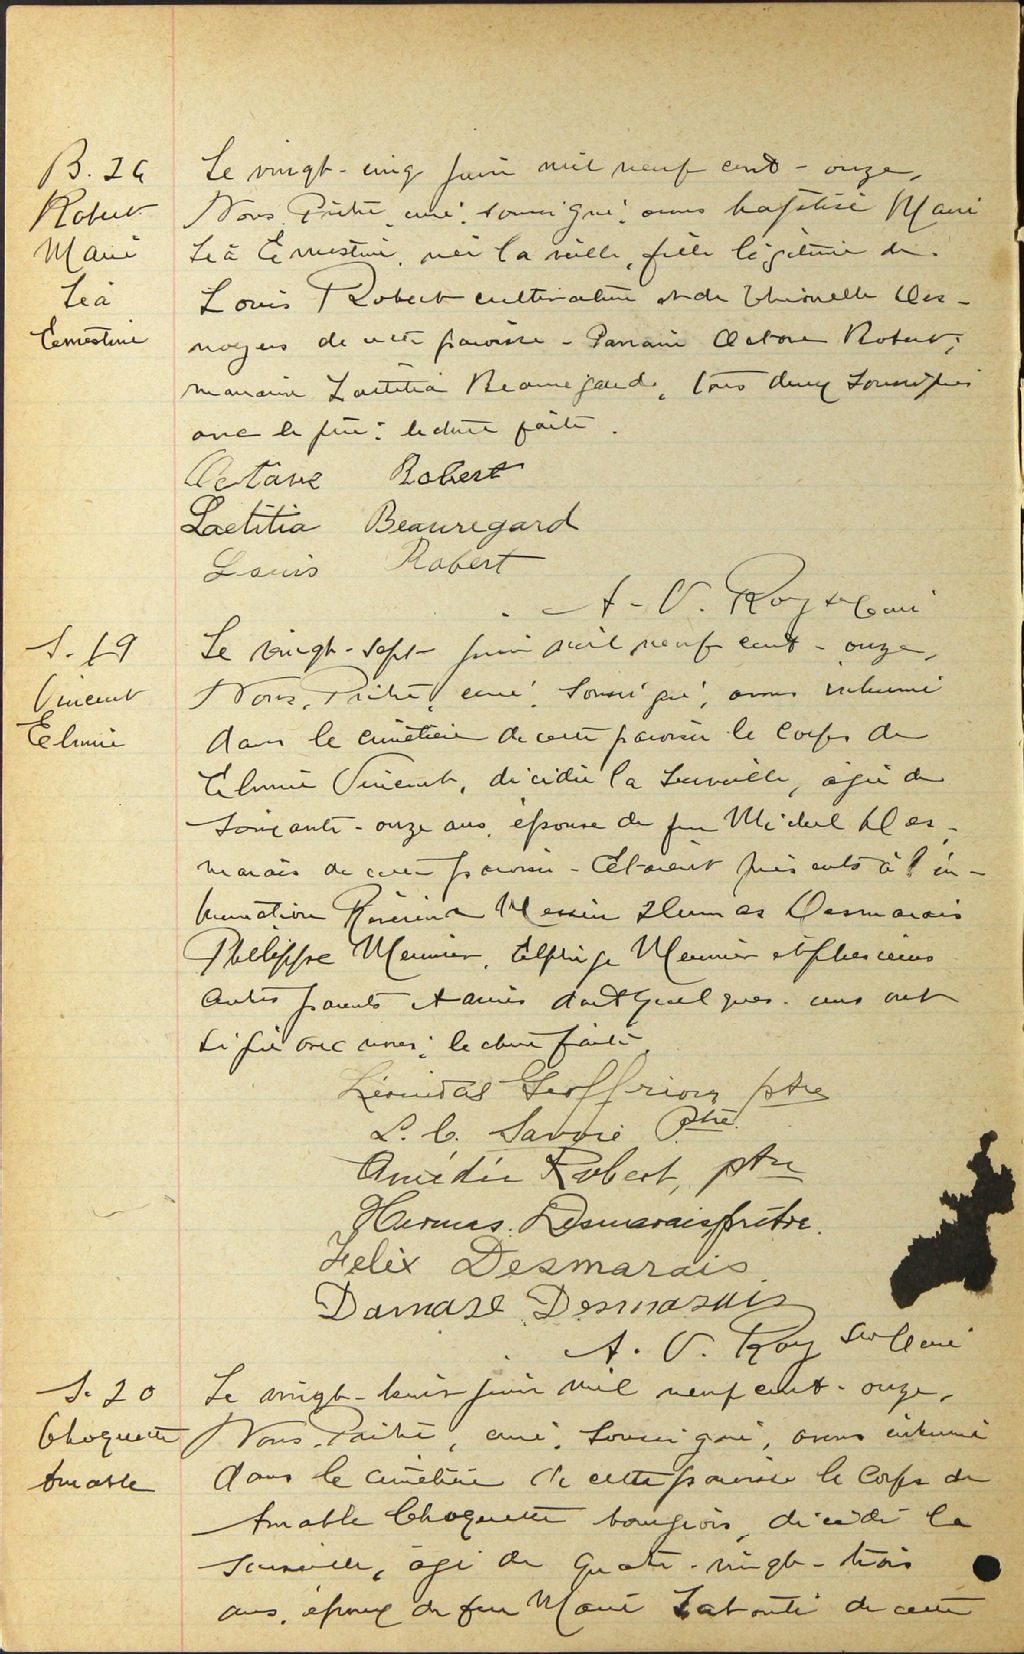 B. 24
Robert
Marie
Léa
Ernestine
Le vingt-cinq juin mil neuf cent-onze,
Nous Prêtre, curé, soussigné, avons baptisé Marie
Léa Ernestine, née la veille, fille légitime de
Louis Robert cultivateur et de Des-
noyers de cette paroisse - Parrain Octave Robert;
marraine Laetitia Beauregard, tous deux soussignés
avec le père; lecture faite.
Octave Robert
Laetitia Beauregard
Louis Robert
A - V. Roy ptre Curé
S. 19
Vincent
Elmire
Le vingt-sept juin mil neuf cent-onze,
Nous, Prêtre, curé, soussigné, avons inhumé
dans le cimetière de cette paroisse le corps de
Elmire Vincent, décédée la surveille, âgée de
soixante-onze ans, épouse de feu Michel Des-
marais de cette paroisse - Etaient présents à l'in-
humation Révérend Messire Hermas Desmarais
Philippe Meunier, Elphège Meunier et plusieurs
autres parents et amis dont quelques-uns ont
signé avec nous; lecture faite.
Léonidas Geoffrion ptre
L. C. Savoie Ptre.
Amédée Robert, ptre
Hermas Desmarais, prêtre.
Felix Desmarais
Damase Desmarais
A. V. Roy Curé
S. 20
Choquette
Amable
Le vingt-huit juin mil neuf cent-onze,
Nous, Prêtre, curé, soussigné, avons inhumé
dans le cimetière de cette paroisse le corps de
Amable Choquette bourgeois, décédé la
surveille, âgé de quatre-vingt-trois
ans, époux de feu Marie Labonté de cette